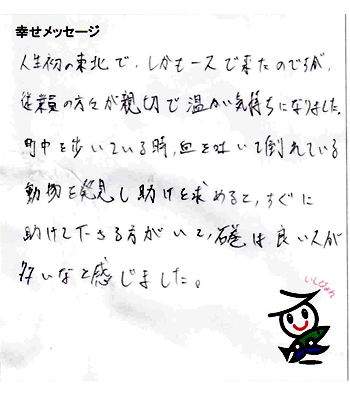 幸せメッセージ
人生初の東北で、しかも一人で来たのですが、
従業員の方々が親切で温かい気持ちになりました。
町中を歩いている時、血を吐いて倒れている
動物を発見し助けを求めると、すぐに
助けて下さる方がいて、石巻は良い人が
多いなと感じました。
いしぴょん